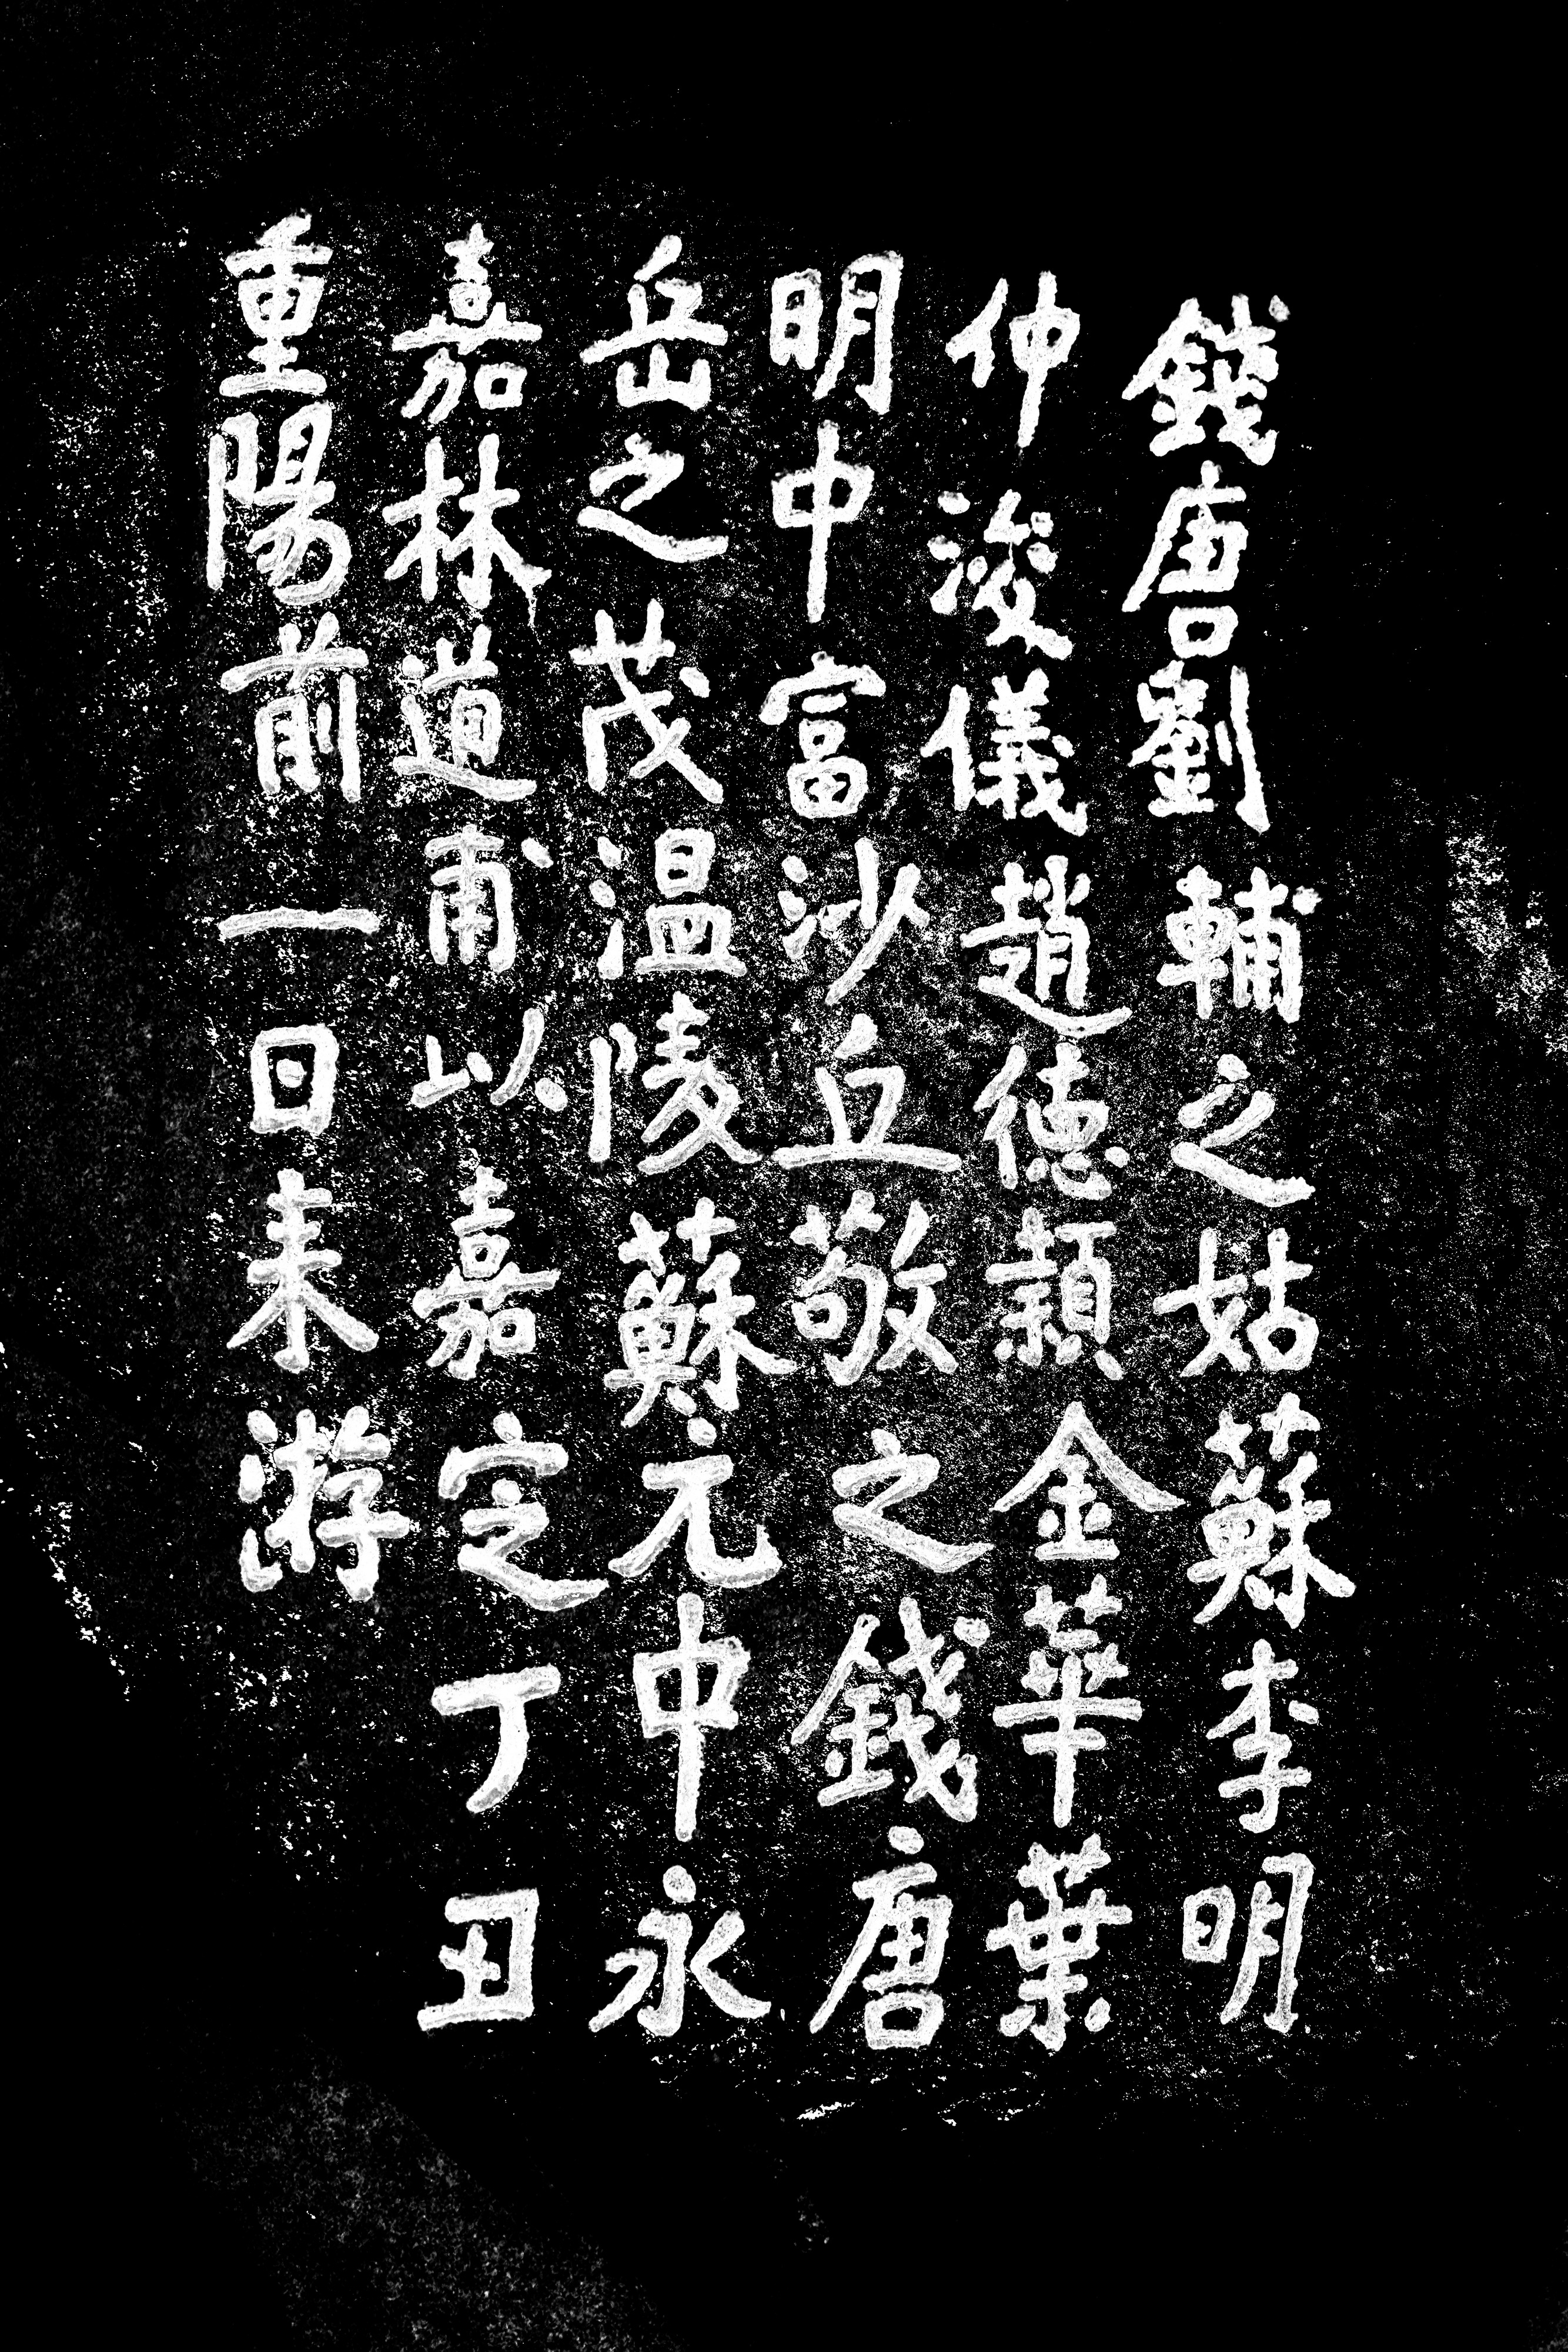 錢唐劉輔之姑蘇李明
仲浚儀趙德頴金華葉
明中富沙丘敬之錢唐
岳之茂温陵蘇元中永
嘉林道甫以嘉定丁丑
重陽前一日来游